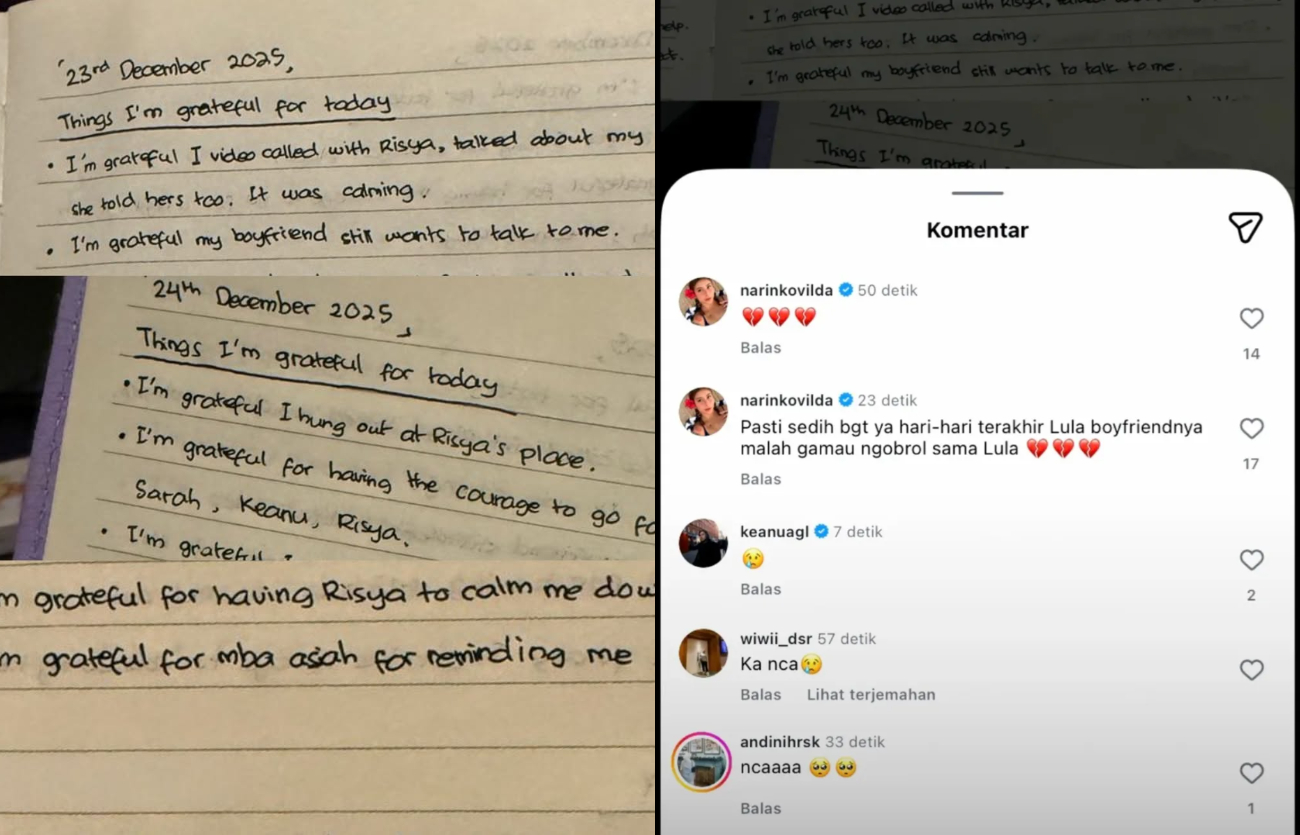 23rd December 2025,
Things I'm grateful for today
• I'm grateful I video called with Risya, talked about my
she told hers too. It was calming.
• I'm grateful my boyfriend still wants to talk to me.
24th December 2025,
Things I'm grateful for today
• I'm grateful I hung out at Risya's place.
• I'm grateful for having the courage to go
Sarah, Keanu, Risya.
• I'm grateful
m grateful for having Risya to calm me dow
m grateful for mba asiah for reminding me
elp.
• I'm grateful I video called with Risya,
she told hers too. It was calming.
• I'm grateful my boyfriend still wants to talk to me.
24th December 2025,
Things I'm grateful
Komentar
narinkovilda 50 detik
💔💔💔
Balas
14
narinkovilda 23 detik
Pasti sedih bgt ya hari-hari terakhir Lula boyfriendnya
malah gamau ngobrol sama Lula 💔💔💔
Balas
17
keanuagl 7 detik
😢
Balas
2
wiwii_dsr 57 detik
Ka nca😢
Balas Lihat terjemahan
andinihrsk 33 detik
ncaaaa 🥺🥺
Balas
1